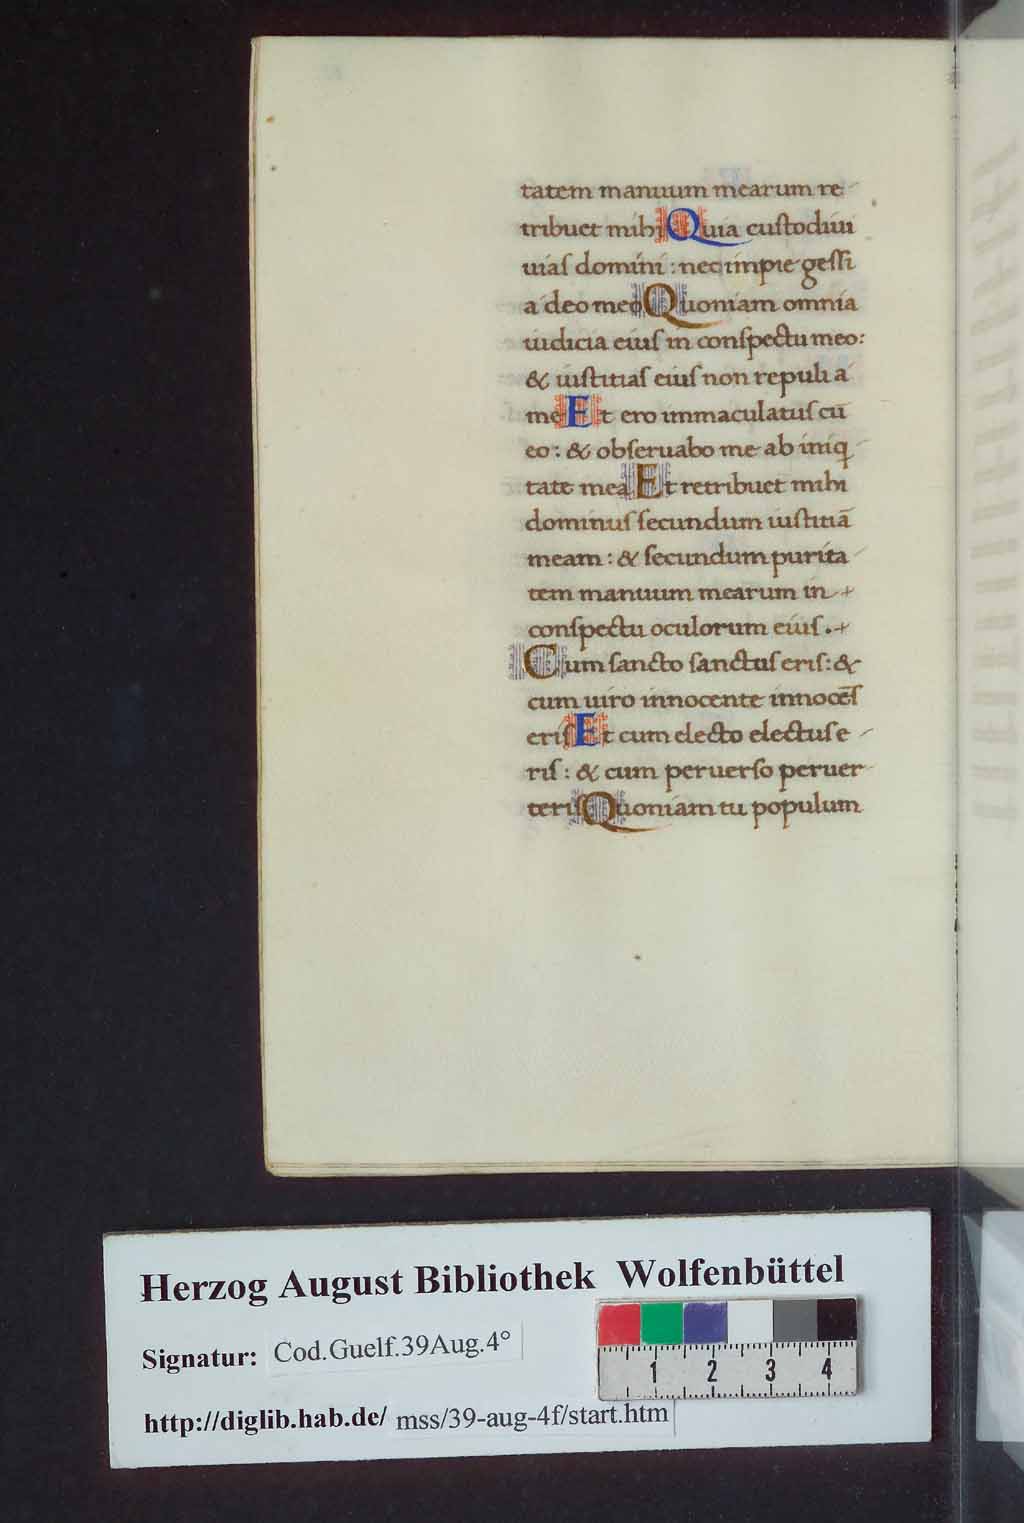 tatem manuum mearum re-
tribuet mihi Quia custodiui
uias domini : nec impie gessi
a deo meo Quoniam omnia
iudicia eius in conspectu meo:
& iustitias eius non repuli a
me Et ero immaculatus cū
eo : & obseruabo me ab iniq
tate mea Et retribuet mihi
dominus secundum iustitiā
meam : & secundum purita-
tem manuum mearum in +
conspectu oculorum eius . +
Cum sancto sanctus eris : &
cum uiro innocente innocēs
eris Et cum electo electus e-
ris : & cum peruerso peruer-
teris Quoniam tu populum
Herzog August Bibliothek Wolfenbüttel
Signatur: Cod.Guelf.39Aug.4°
1 2 3 4
http://diglib.hab.de/ mss/39-aug-4f/start.htm